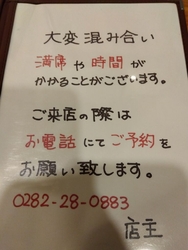 大変混み合い
満席や時間が
かかることがございます。
ご来店の際は
お電話にてご予約を
お願い致します。
0282-28-0883
店主